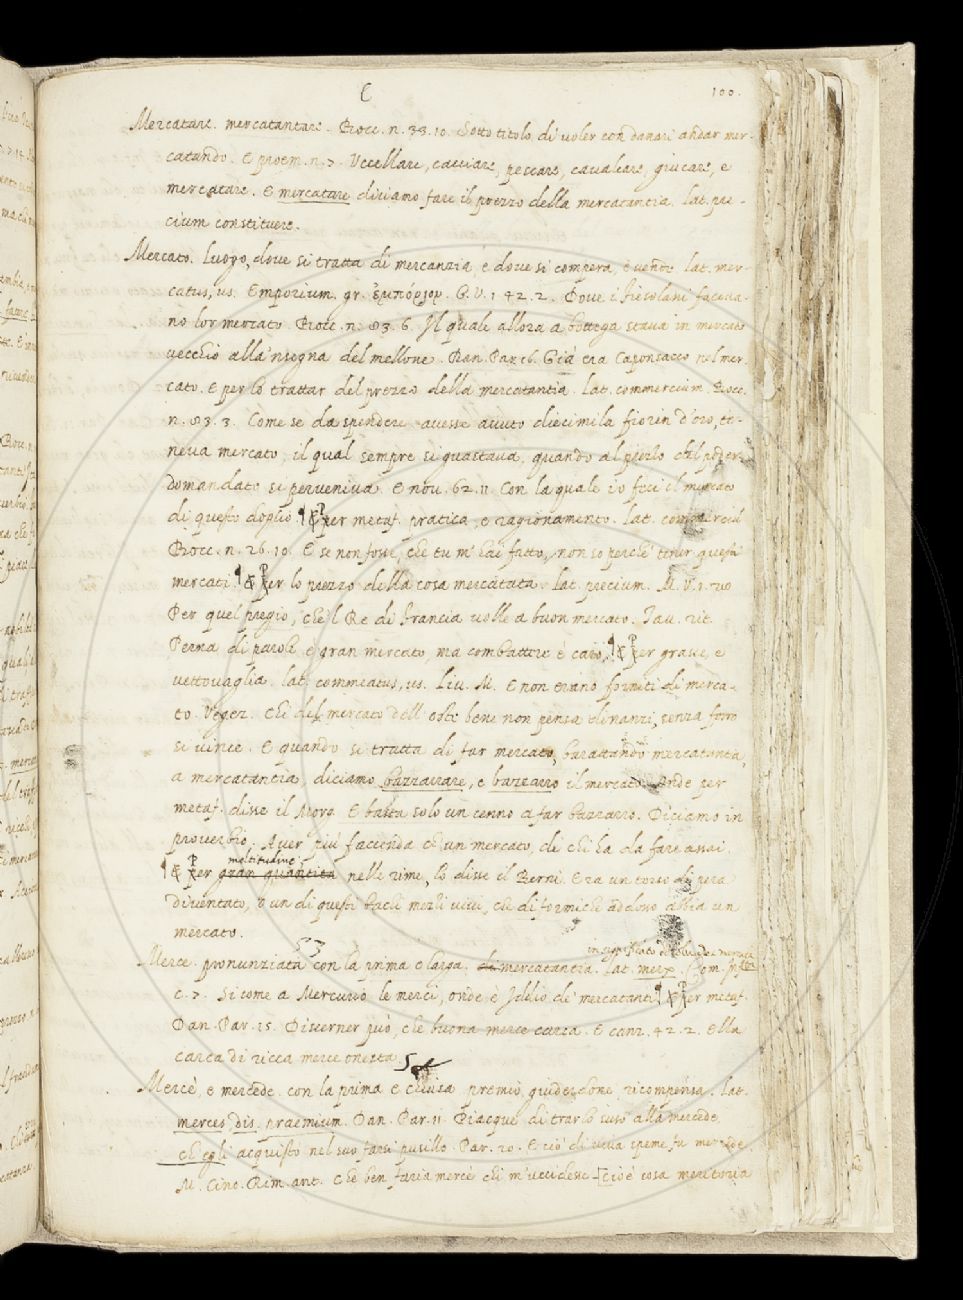 C
100.
Mercatare. mercatantare. Bocc. n. 33. 10. Sotto titolo di voler con danari andar mer-
catando. E proem. n. 7. Uccellare, cacciare, pescare, cavalcare, giucare, e
mercatare. E mercatare diciamo fare il prezzo della mercatantia. lat. pre-
cium constituere.
Mercato. Luogo, dove si tratta di mercanzia, e dove si compera, e vende. lat. mer-
catus, us. Emporium. gr. ἐμπόριον. G. V. 1. 42. 2. Dove i Fiesolani faceva-
no lor mercato. Bocc. n. 83. 6. Il quale allora a bottega stava in mercato
vecchio alla 'nsegna del mellone. Dan. Par. 16. Già era Caponsacco nel mer-
cato. E per lo trattar del prezzo della mercatantia. lat. commercium. Bocc.
n. 83. 3. Come se da spendere avesse avuto diecimila fiorin d'oro, te-
neva mercato, il qual sempre si guastava, quando al prezzo del poder
domandato si perveniva. E nov. 62. 11. Con la quale io feci il mercato
di questo doglio. ¶ & Per metaf. pratica, e ragionamento. lat.
Bocc. n. 26. 10. E se non fosse, che tu m' hai fatto, non so perchè tener questi
mercati. ¶ & Per lo prezzo della cosa mercatata. lat. precium. M. V. 1. 20
Per quel pregio, che 'l Re di Francia volle a buon mercato. Tav. rit.
di parole è gran mercato, ma combattere è caro. ¶ & Per grascie, e
vettovaglia. lat. commeatus, us. Liv. M. E non erano forniti di merca-
to. Vegez. Chi del mercato dell' oste bene non pensa dinanzi, senza ferro
si vince. E quando si tratta di far mercato, barattando mercatantia,
a mercatantia, diciamo bazzarrare, e bazzarro il mercato. Onde per
metaf. disse il Morg. E basta solo un cenno a far bazzarro. Diciamo in
proverbio. Aver più faccenda ch' un mercato, di chi ha da fare assai.
moltitudine
¶ & Per gran quantità nelle rime, lo disse il Berni. Era un torso di pera
diventato, o un di questi bachi mezzi vivi, che di formiche adosso abbia un
mercato.
in significato
Merce. pronunziata con la prima e larga. di mercatantia. lat. merx.
c. 7. Si come a Mercurio le merci, onde è Iddio de' mercatanti. ¶ & Per metaf.
Dan. Par. 15. Discerner può, che buona merce carca. E canz. 42. 2. Ella
carca di ricca merce onesta.
Mercè, e mercede. con la prima e chiusa premio, guiderdone, ricompensa. Lat.
merces, dis. praemium. Dan. Par. 11. Piacque di trarlo suso alla mercede,
ch' egli acquistò nel suo farsi pusillo. Par. 20. E ciò di viva speme fu mercede.
M. Cino. Rim. ant. Che ben faria mercè chi m' uccidesse [cioè cosa meritoria